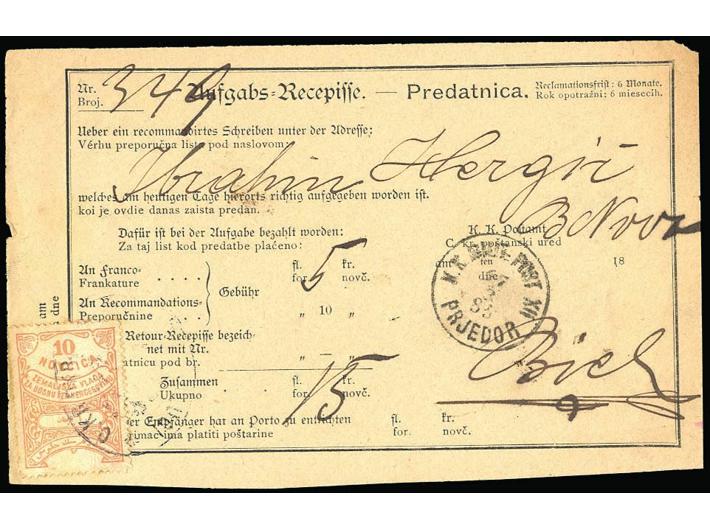 Nr. 349 Aufgabs-Recepisse. — Predatnica. Reclamationsfrist: 6 Monate.
Broj. Rok opotražni: 6 miesecih.
Ueber ein recommandirtes Schreiben unter der Adresse:
Vérhu preporučna lista pod naslovom
Ibrahim Hergić
welches am heutigen Tage hierorts richtig aufgegeben worden ist.
koi je ovdie danas zaista predan.
B Novi
Dafür ist bei der Aufgabe bezahlt worden: K. K. Postamt
Za taj list kod predatbe plaćeno: C. kr. poštanski ured
An Franco- fl. 5 kr. am ten 18
Frankature for. novč. dne
Gebühr
An Recommandations-
Preporučnine " 10 "
Retour-Recepisse bezeich-
net mit Nr.
atnicu pod br. " – "
Zusammen fl. 15 kr.
Ukupno for. novč.
er Empfänger hat an Porto zu entrichten fl. kr.
rimac ima platiti poštarine for. novč.
am
dne
K.K. POST XII
PRJEDOR
10
NOVČIĆA
ZEMALJSKA VLADA
ZA BOSNU I HERCEGOVINU